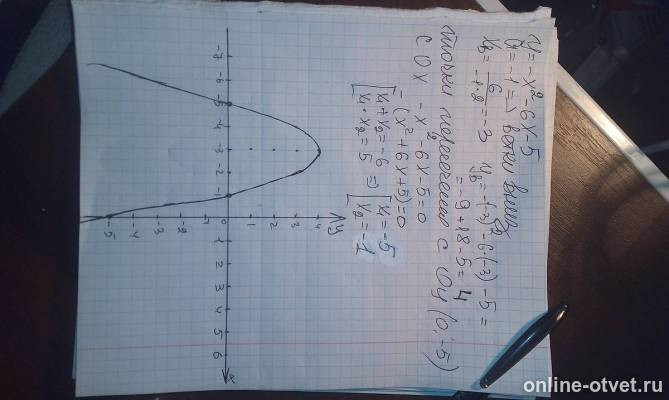 y = -x² - 6x - 5
a = -1 => ветки вниз
x_b = 6/(-1·2) = -3 y_b = -(-3)² - 6·(-3) - 5 =
= -9 + 18 - 5 = 4
точки пересечения с Oy (0; -5)
с Ox -x² - 6x - 5 = 0
-(x² + 6x + 5) = 0
[x₁ + x₂ = -6 [x₁ = -5
[x₁ · x₂ = 5 => [x₂ = -1
y
4
3
2
1
-7 -6 -5 -4 -3 -2 -1 0 1 2 3 4 5 6 x
-1
-2
-3
-4
-5
online-otvet.ru